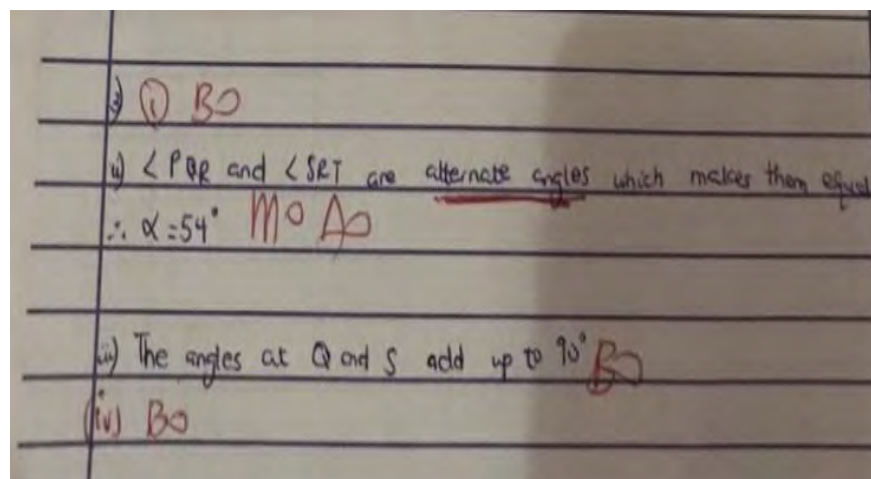 (i) BO
ii) ∠PQR and ∠SRT are alternate angles which makes them equal
∴ α = 54° M0 A0
iii) The angles at Q and S add up to 90° B0
(iv) B0